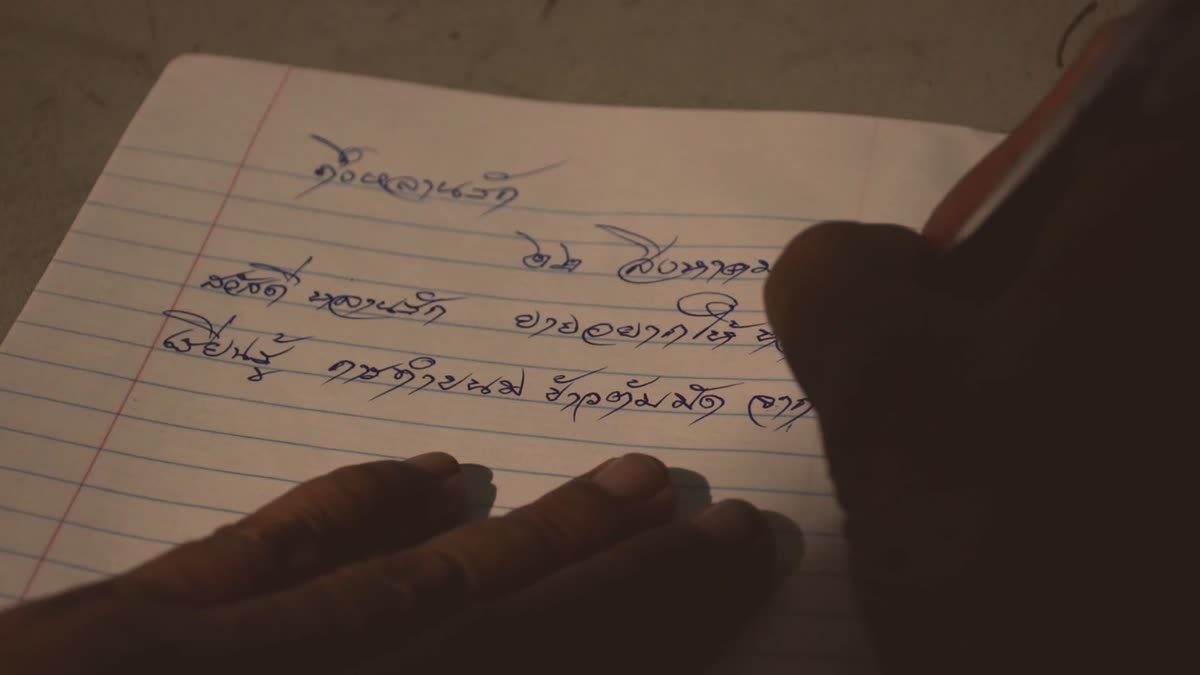 ถึงหลานรัก
๒๒ สิงหาคม
สวัสดี หลานรัก ยายอยากให้
เรียนรู้ การทำขนม ข้าวต้มมัด จาก